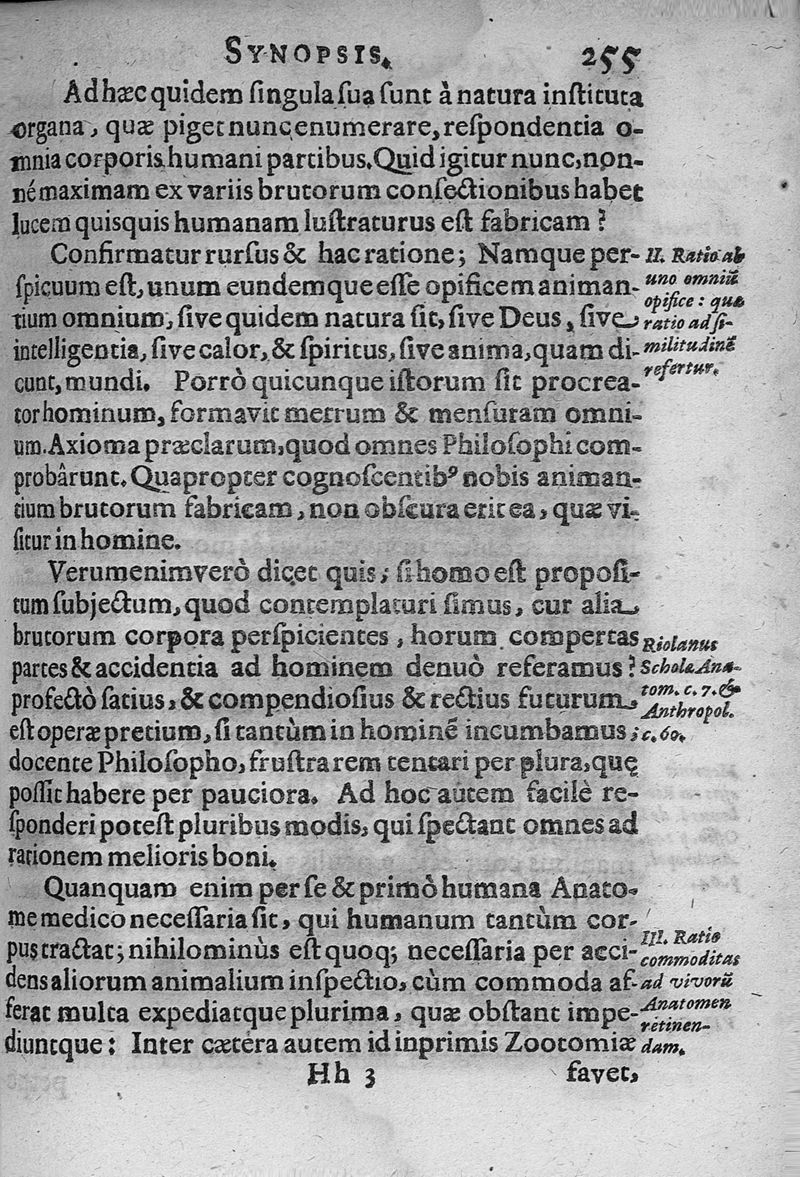 SYNOPSIS.
255
Ad hæc quidem ſingula ſua ſunt à natura inſtituta
organa, quæ piget nunc enumerare, reſpondentia o-
mnia corporis humani partibus. Quid igitur nunc, non-
né maximam ex variis brutorum conſectionibus habet
lucem quisquis humanam luſtraturus eſt fabricam?
Confirmatur rurſus & hac ratione; Namque per-
ſpicuum eſt, unum eundemque eſſe opificem animan-
tium omnium, ſive quidem natura ſit, ſive Deus, ſive
intelligentia, ſive calor, & ſpiritus, ſive anima, quam di-
cunt, mundi. Porrò quicunque iſtorum ſit procrea-
tor hominum, formavit metrum & menſuram omni-
um. Axioma præclarum, quod omnes Philoſophi com-
probârunt. Quapropter cognoſcentibꝰ nobis animan-
tium brutorum fabricam, non obſcura erit ea, quæ vi-
ſitur in homine.
II. Ratio ab
uno omniũ
opifice: quæ
ratio ad ſi-
militudinẽ
refertur.
Verumenimverò dicet quis; ſi homo eſt propoſi-
tum ſubjectum, quod contemplaturi ſimus, cur alia
brutorum corpora perſpicientes, horum compertas
partes & accidentia ad hominem denuò referamus?
profectò ſatius, & compendioſius & rectius futurum,
eſt operæ pretium, ſi tantùm in hominẽ incumbamus;
docente Philoſopho, fruſtra rem tentari per plura, quę
poſſit habere per pauciora. Ad hoc autem facilè re-
ſponderi poteſt pluribus modis, qui ſpectant omnes ad
rationem melioris boni.
Riolanus
Schola Ana-
tom. c. 7. &
Anthropol.
c. 60.
Quanquam enim per ſe & primò humana Anato-
me medico neceſſaria ſit, qui humanum tantùm cor-
pus tractat; nihilominùs eſt quoq; neceſſaria per acci-
dens aliorum animalium inſpectio, cùm commoda af-
ferat multa expediatque plurima, quæ obſtant impe-
diuntque: Inter cætera autem id inprimis Zootomiæ
III. Ratio
commoditas
ad vivorũ
Anatomen
retinen-
dam.
Hh 3
favet,